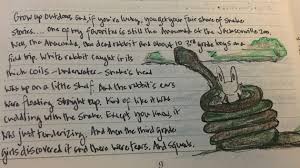 Grow up outdoors and if you're lucky, you get your fair share of snake
stories.... one of my favorite is still the Anaconda at the Jacksonville Zoo.
Now, the Anaconda, one dead rabbit and about 10 3rd grade boys on a
field trip. White rabbit caught in its
thick coils - Underwater - Snake's head
was up on a little shelf. And the rabbit's ears
were floating straight up. Kind of like it was
cuddling with the snake. Except you knew it
was just tenderizing. And then the third grade
girls discovered it and there were tears. And squeals.
9